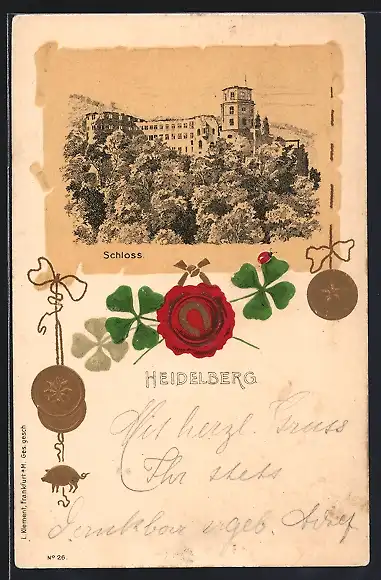 Schloss.
HEIDELBERG
Mit herzl. Gruss
Ihr stets
Dankbar ergeb. Adolf
L. Klement, Frankfurt a. M. Ges. gesch
No 26.